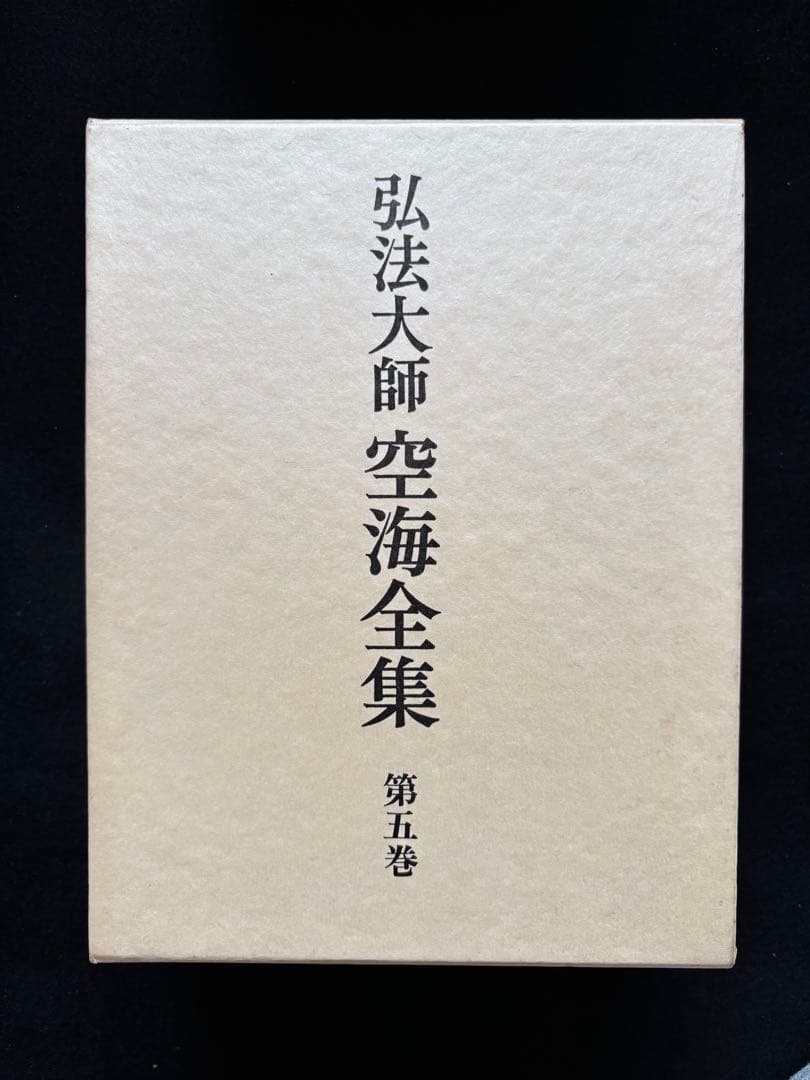 弘法大師 空海全集 第五巻